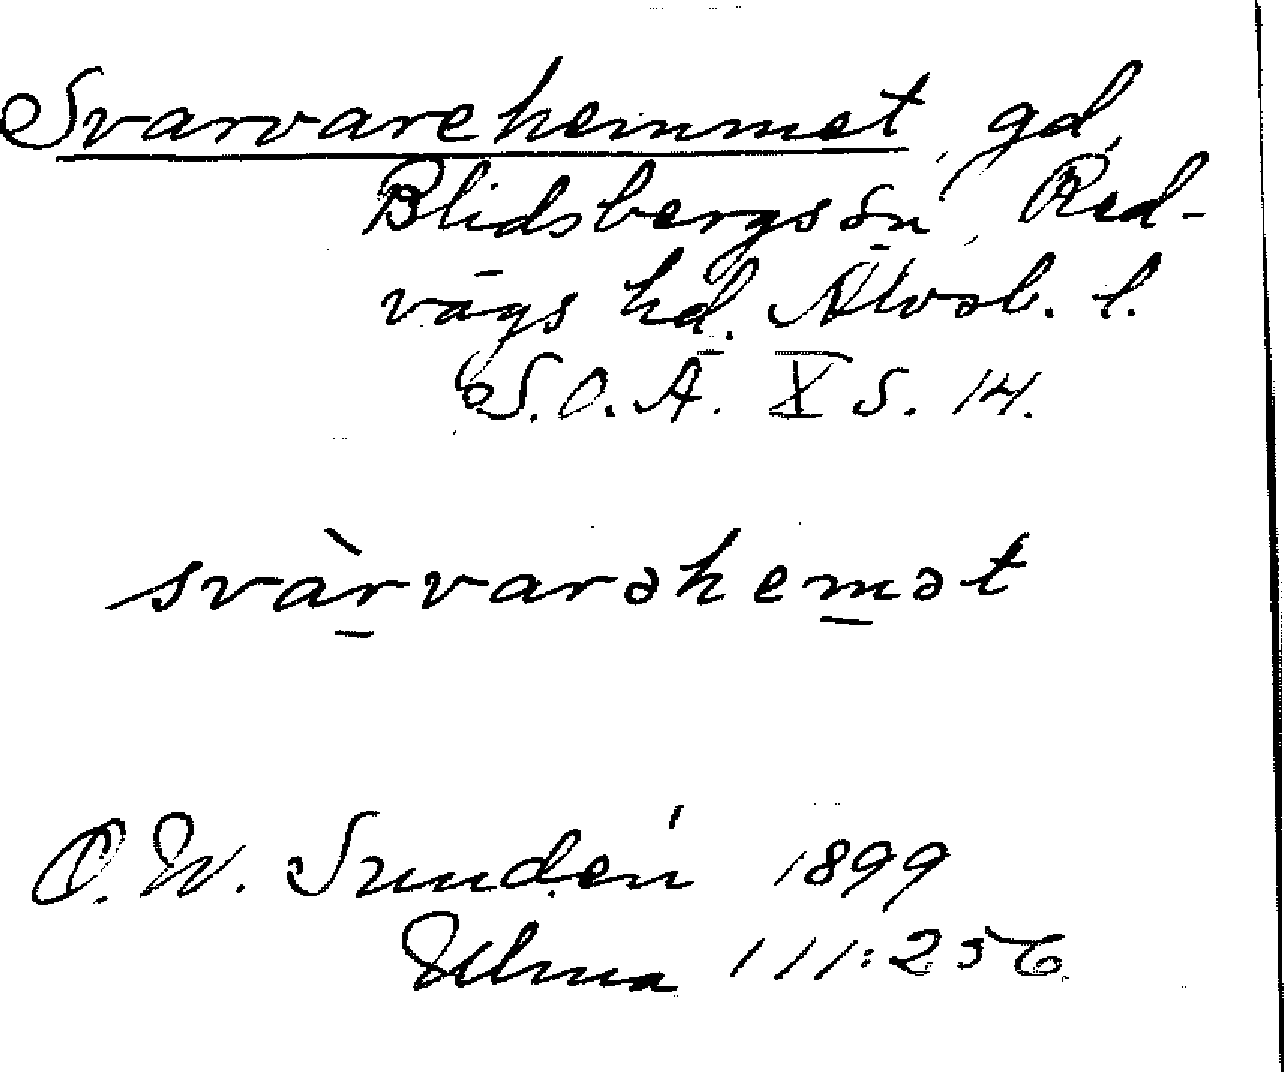 Svarvarehemmet, gd,
Blidsbergs sn, Red-
vägs hd. Älvsb. l.
S.O.Ä. X s. 14.
svàr̲varəhem̲ət
O. W. Sundén 1899
Ulma 111:256